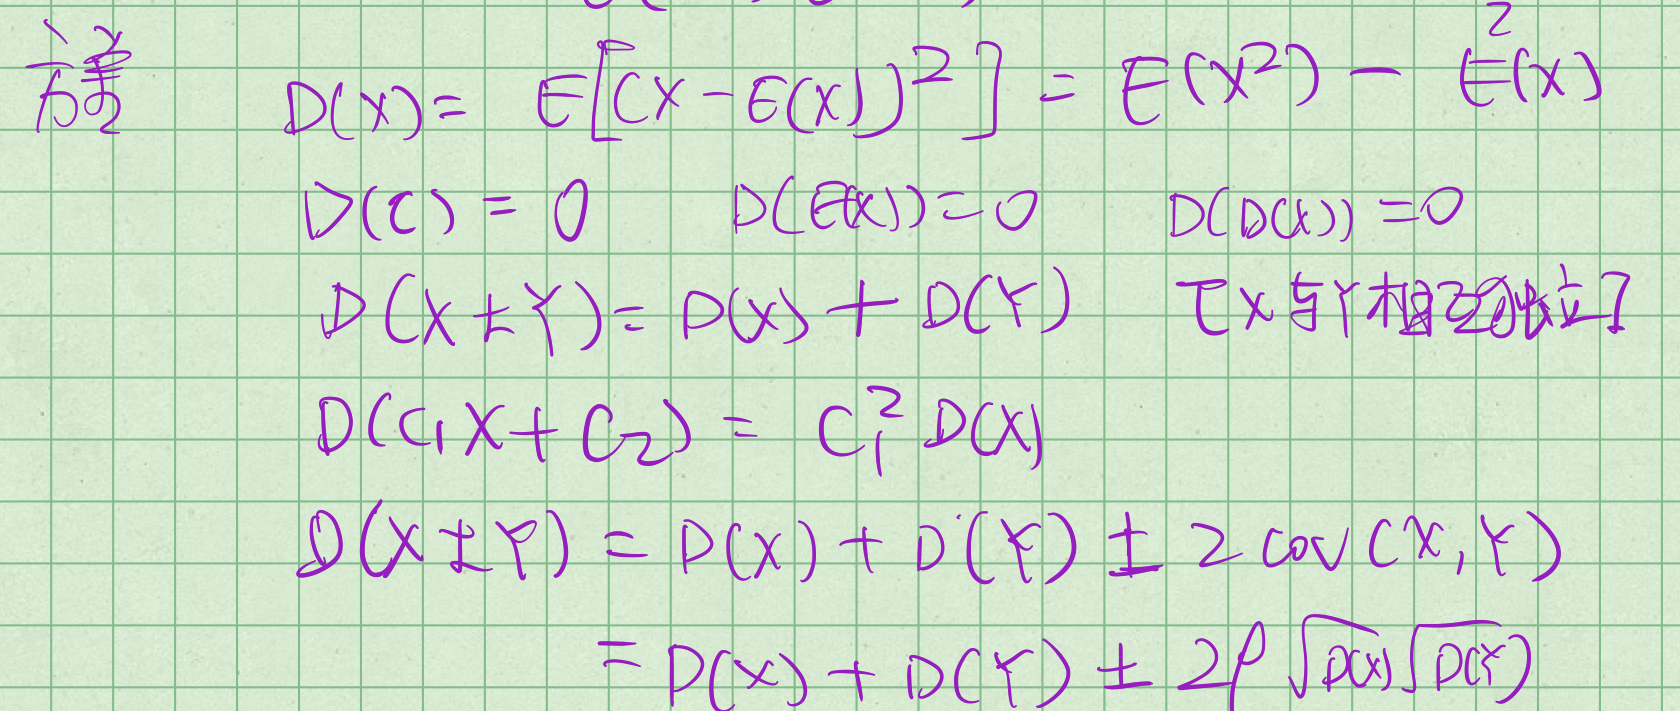 方差 D(X) = E[(X - E(X))²] = E(X²) - E²(X)
D(C) = 0 D(E(X)) = 0 D(D(X)) = 0
D(X+Y) = D(X) + D(Y) [X与Y相互独立]
D(C₁X + C₂) = C₁² D(X)
D(X±Y) = D(X) + D(Y) ± 2cov(X,Y)
= D(X) + D(Y) ± 2ρ √D(X) √D(Y)